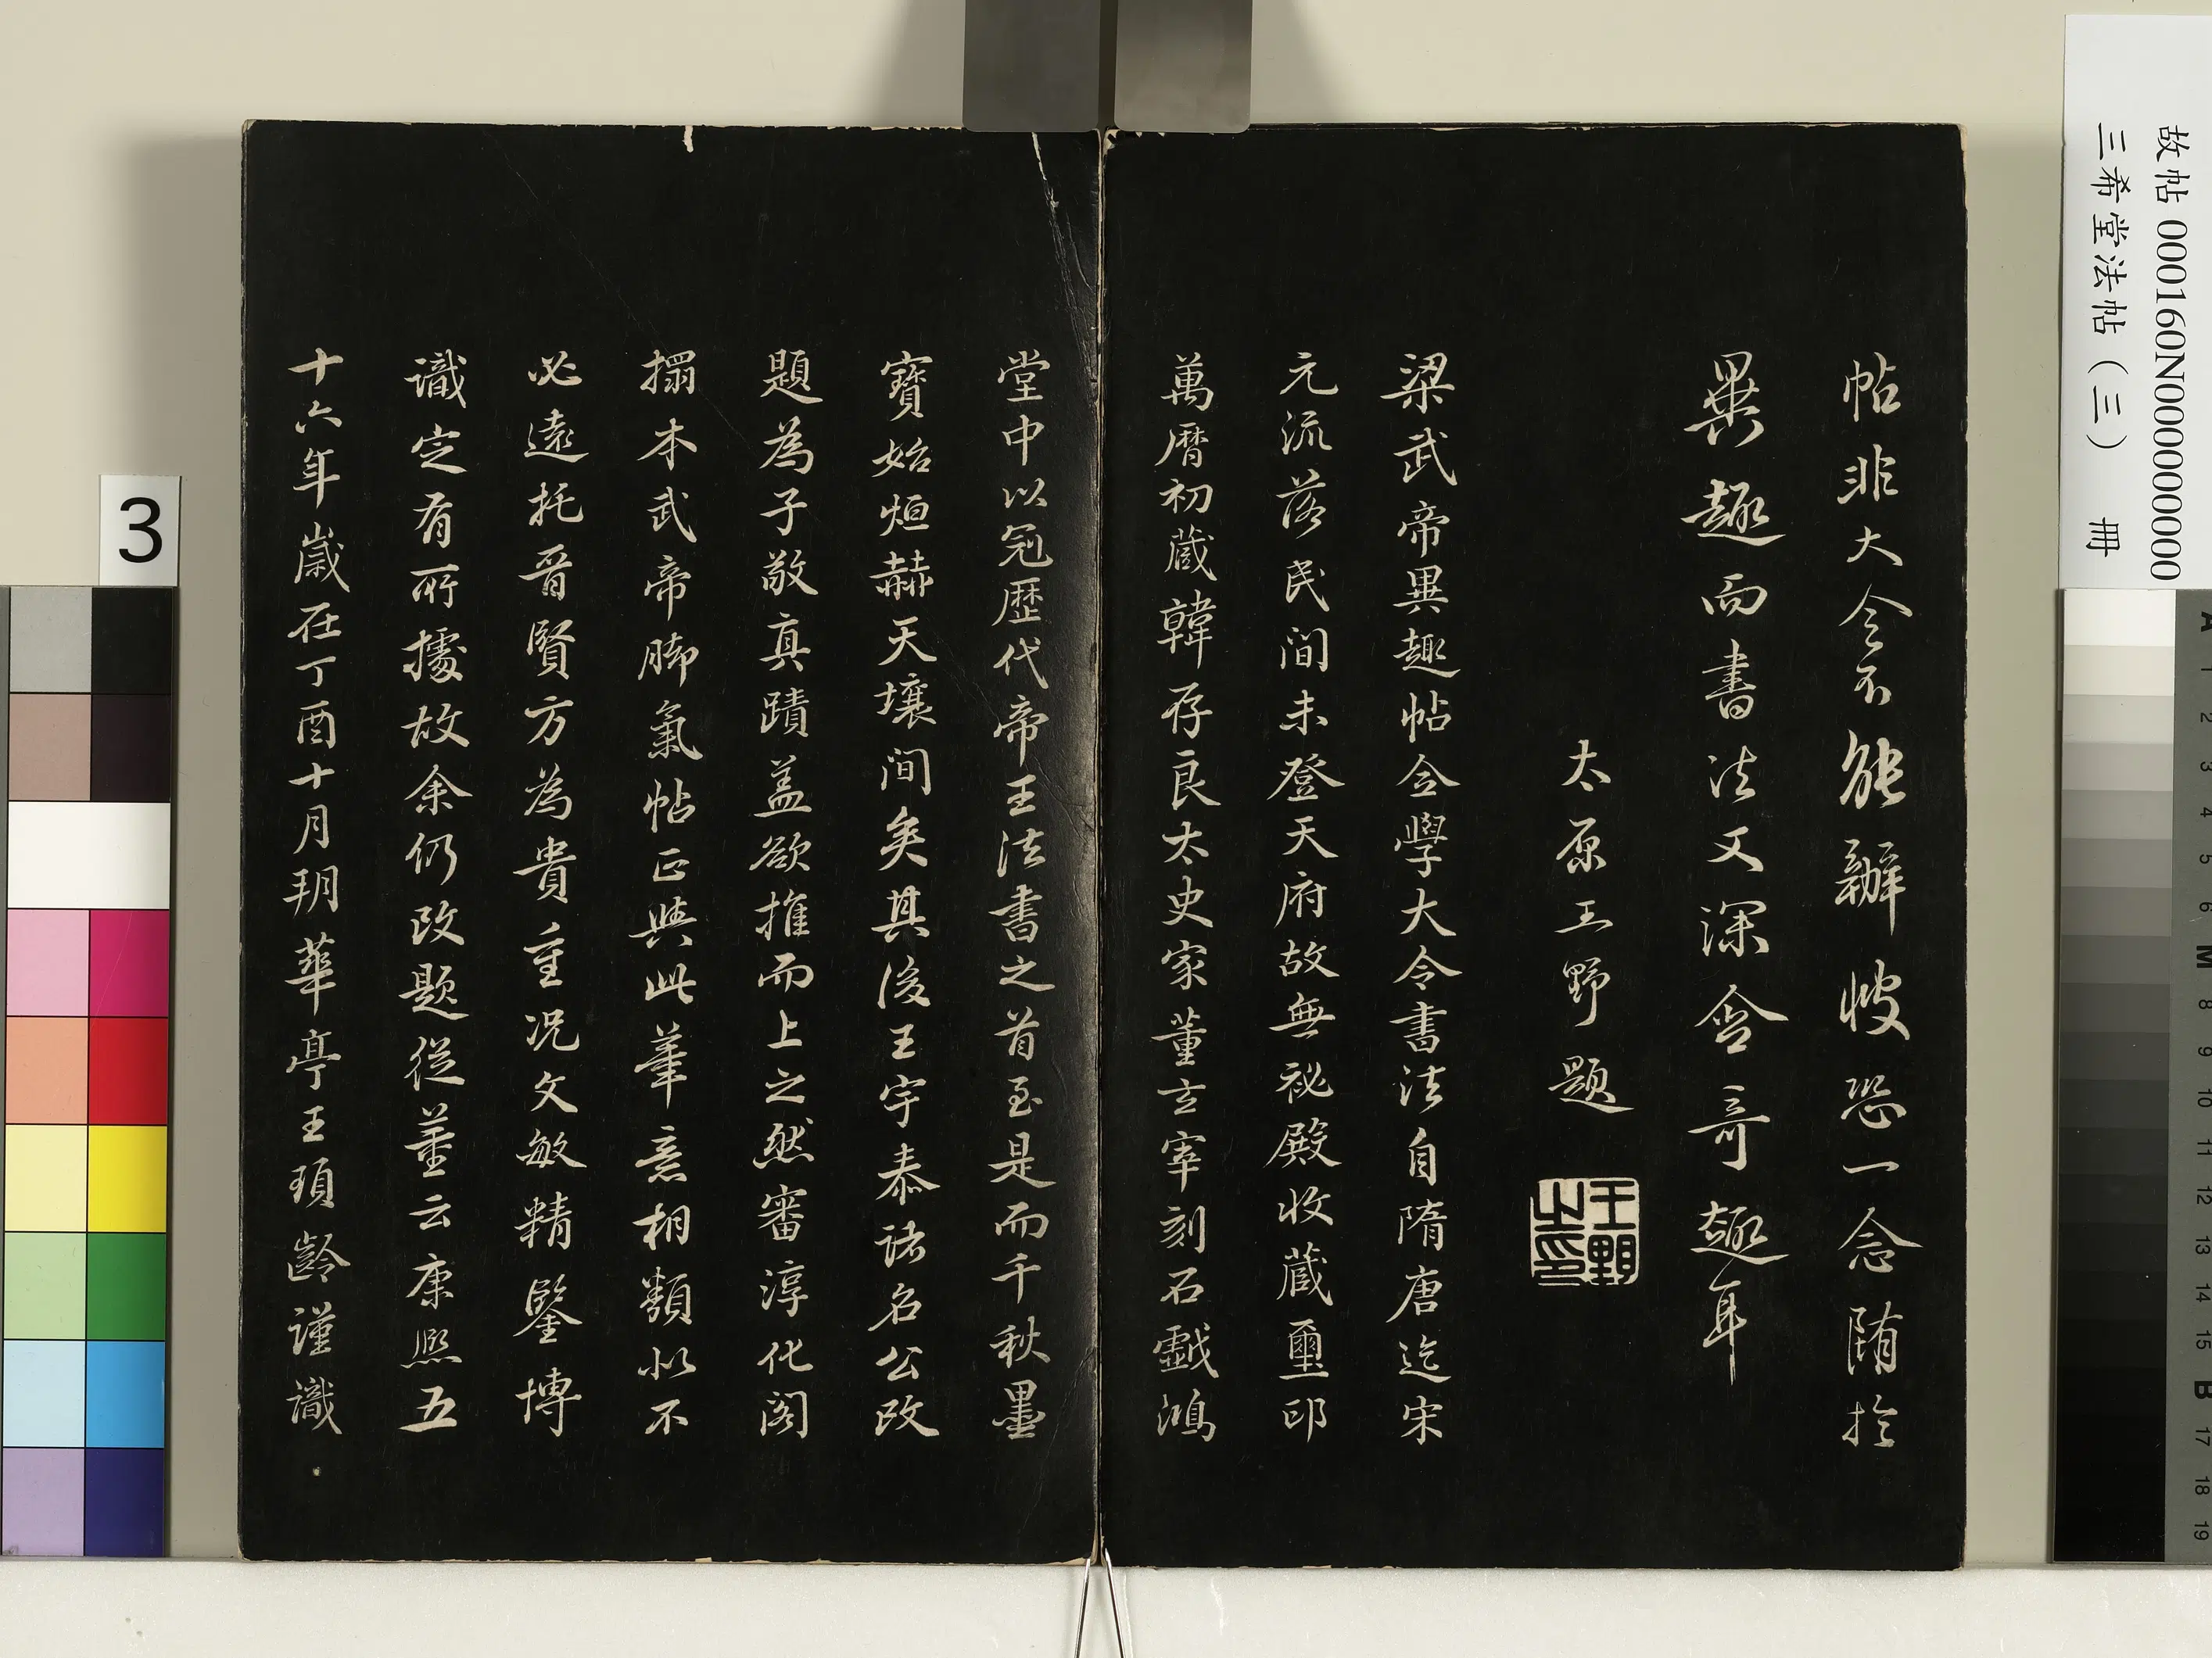 帖非大令不能辦憂恐一念隨於
異趣而書法又深會奇趣耳
太原王野題
王野之印
梁武帝異趣帖全學大令書法自隋唐迄宋
元流落民間未登天府故無祕殿收藏璽印
萬曆初藏韓存良太史家董玄宰刻石戲鴻
堂中以冠歷代帝王法書之首至是而千秋墨
寶始烜赫天壤間矣其後王宇泰諸名公改
題為子敬真蹟蓋欲推而上之然審淳化閣
搨本武帝腳氣帖正與此筆意相類似不
必遠托晉賢方為貴重況文敏精鑒博
識定有所據故余仍改題從董云康熙五
十六年歲在丁酉十月朔華亭王頊齡謹識
故帖 000160N000000000
三希堂法帖（三） 冊
3
A 1 2 3 4 5 6 M 8 9 10 11 12 13 14 15 B 17 18 19